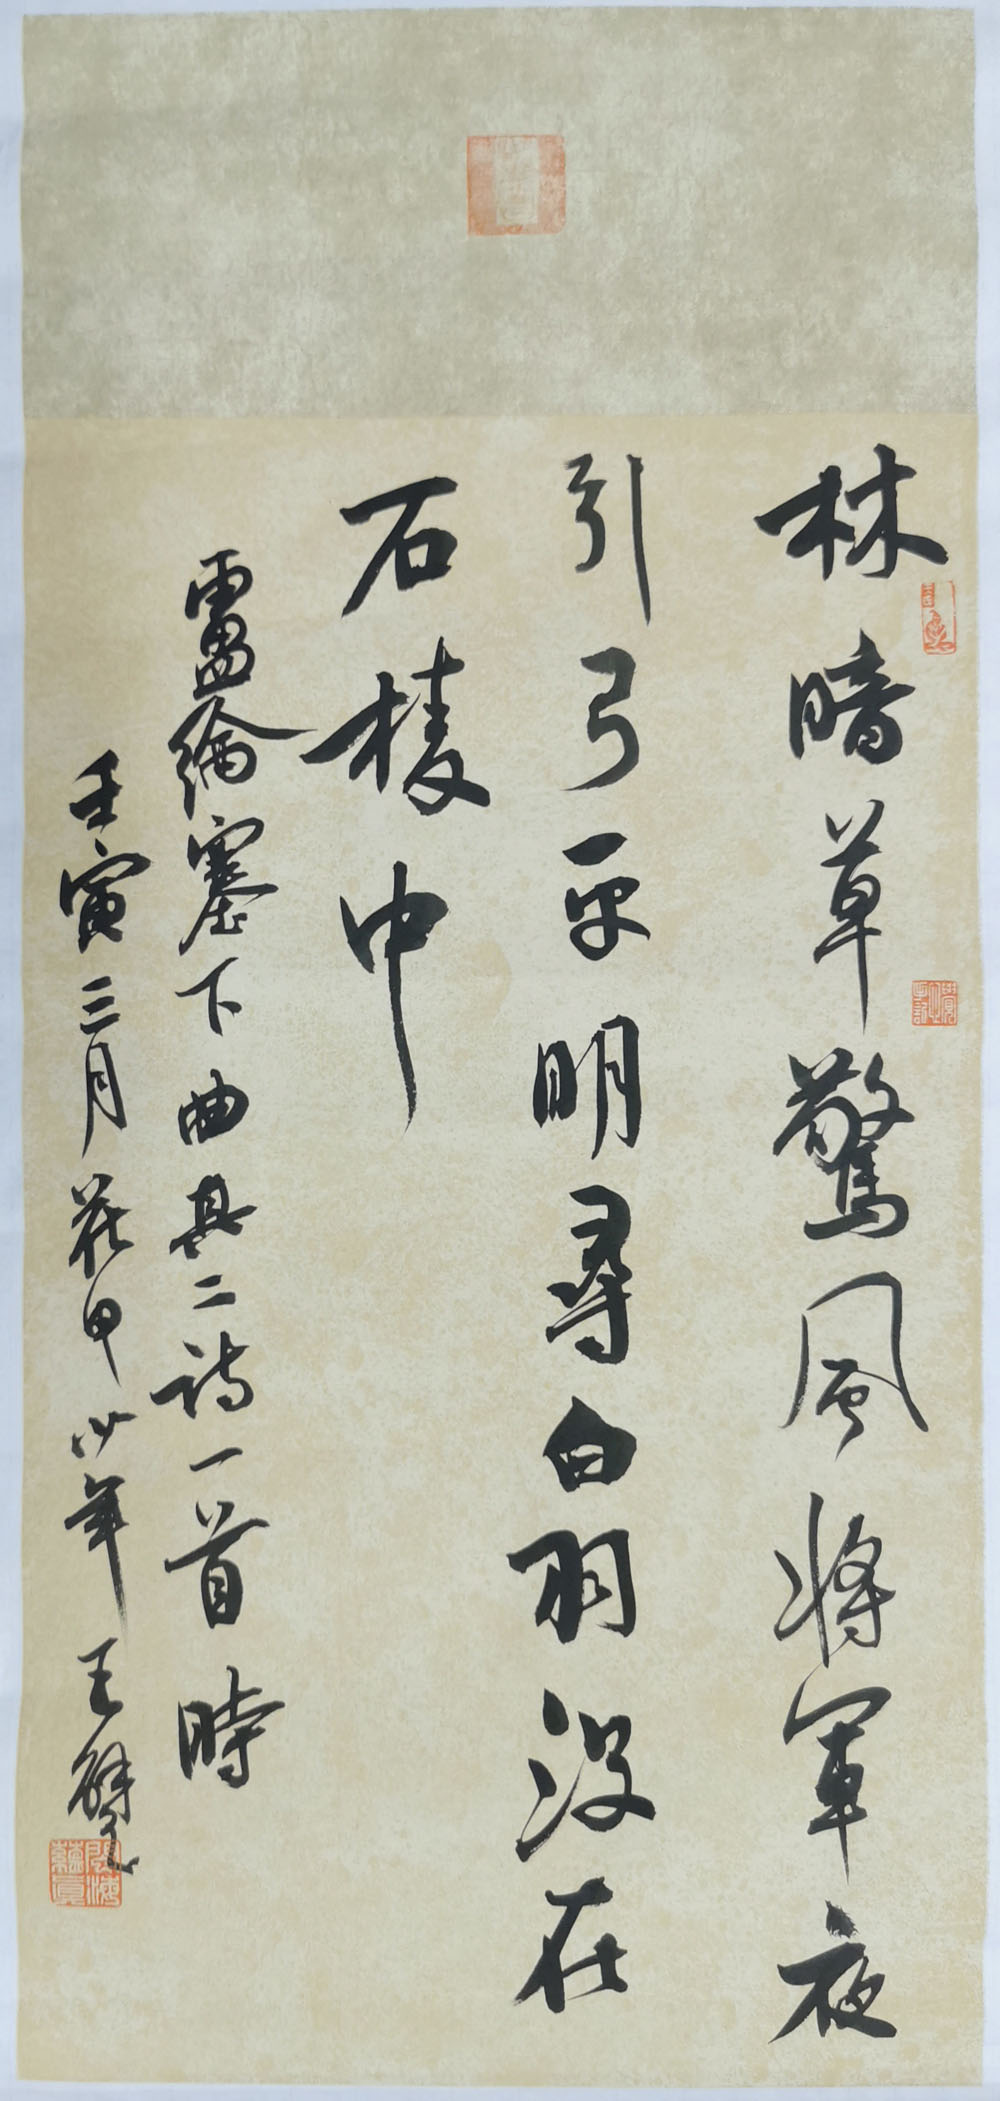 林暗草驚風將軍夜
引弓平明尋白羽没在
石棱中
盧綸塞下曲其二詩一首時
壬寅三月花甲少年王